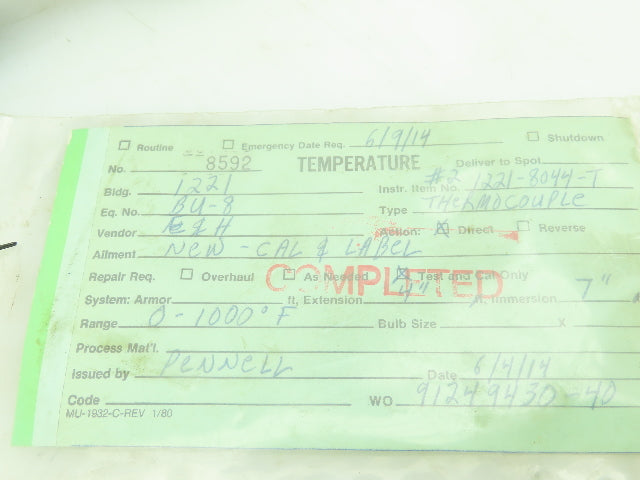 Routine Emergency Date Req. 6/9/14 Shutdown
No. 8592 TEMPERATURE Deliver to Spot
Bldg. 1221 Instr. Item No. #2 1221-8044-T
Eq. No. BU-8 Type THERMOCOUPLE
Vendor E&H Action: Direct Reverse
Ailment NEW - CAL & LABEL
Repair Req. Overhaul As Needed Test and Cal Only
COMPLETED
System: Armor ft, Extension 4" Immersion 7"
Range 0-1000°F Bulb Size X
Process Mat'l.
Issued by PENNELL Date 6/4/14
Code WO 91249430-40
MU-1932-C-REV 1/80